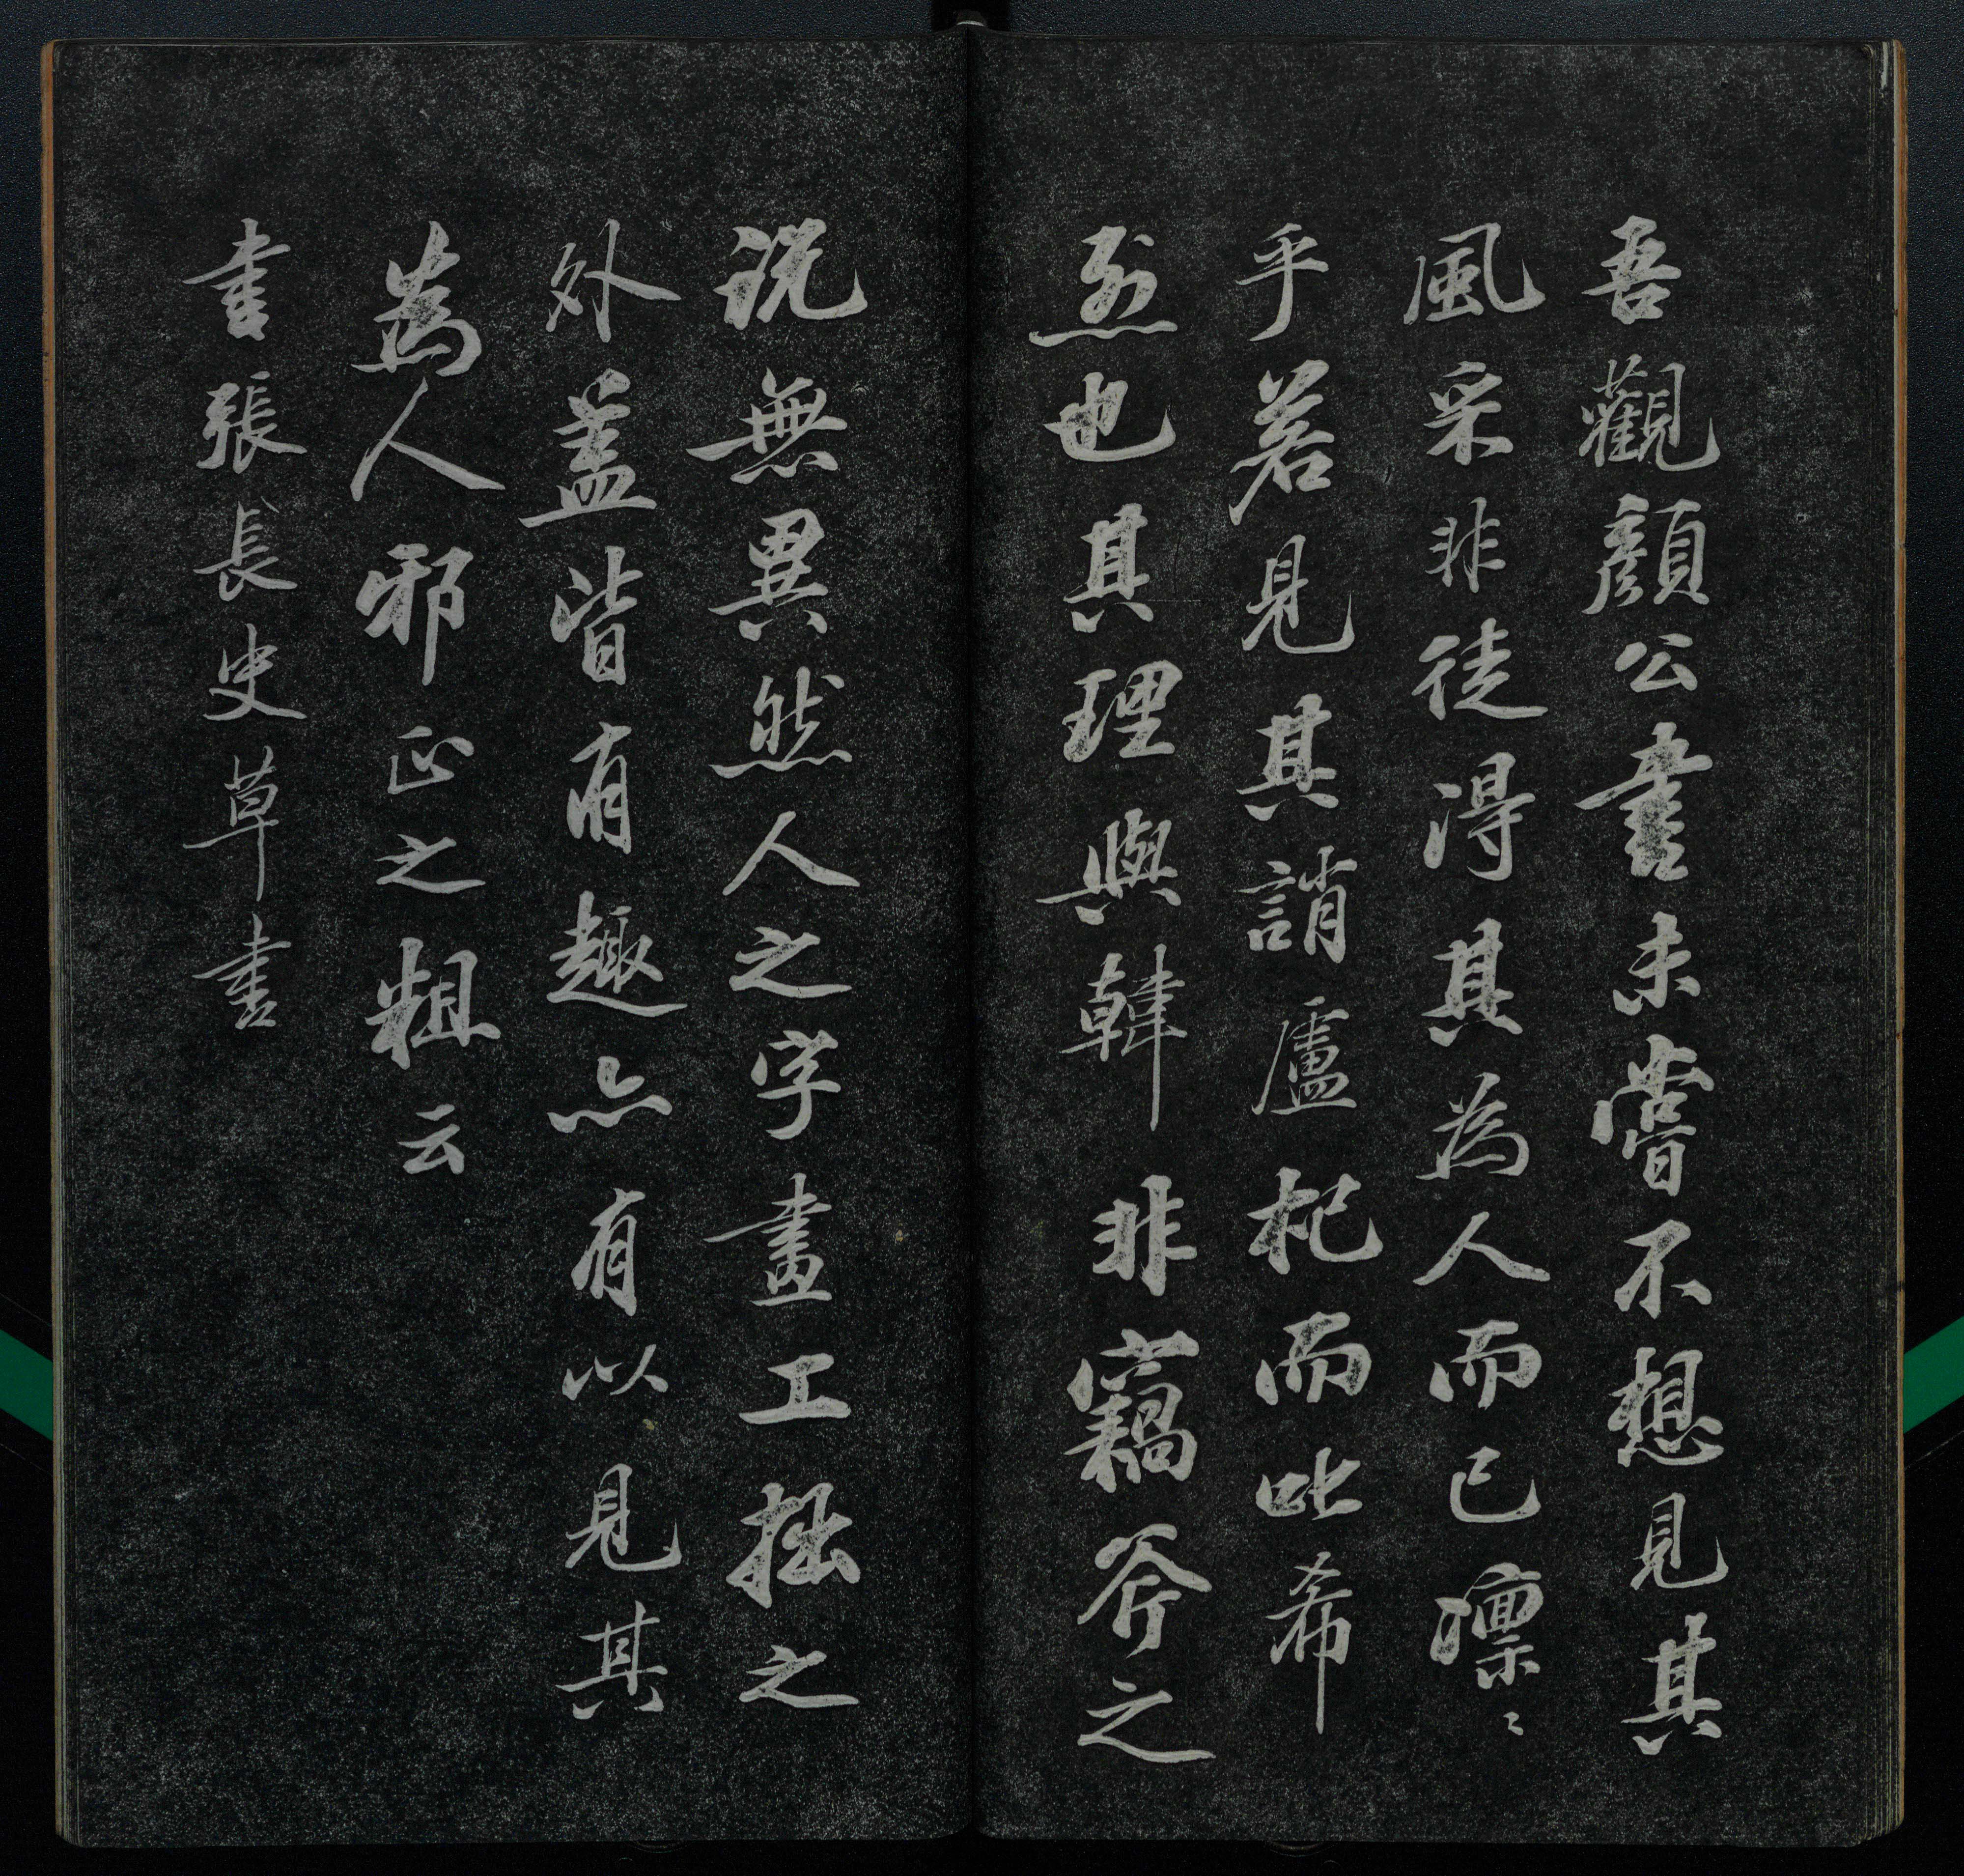 吾觀顏公書未嘗不想見其
風采非徒得其為人而已凜〻
乎若見其誚盧杞而叱希
烈也其理與韓非竊斧之
說無異然人之字畫工拙之
外蓋皆有趣亦有以見其
為人邪正之粗云
書張長史草書